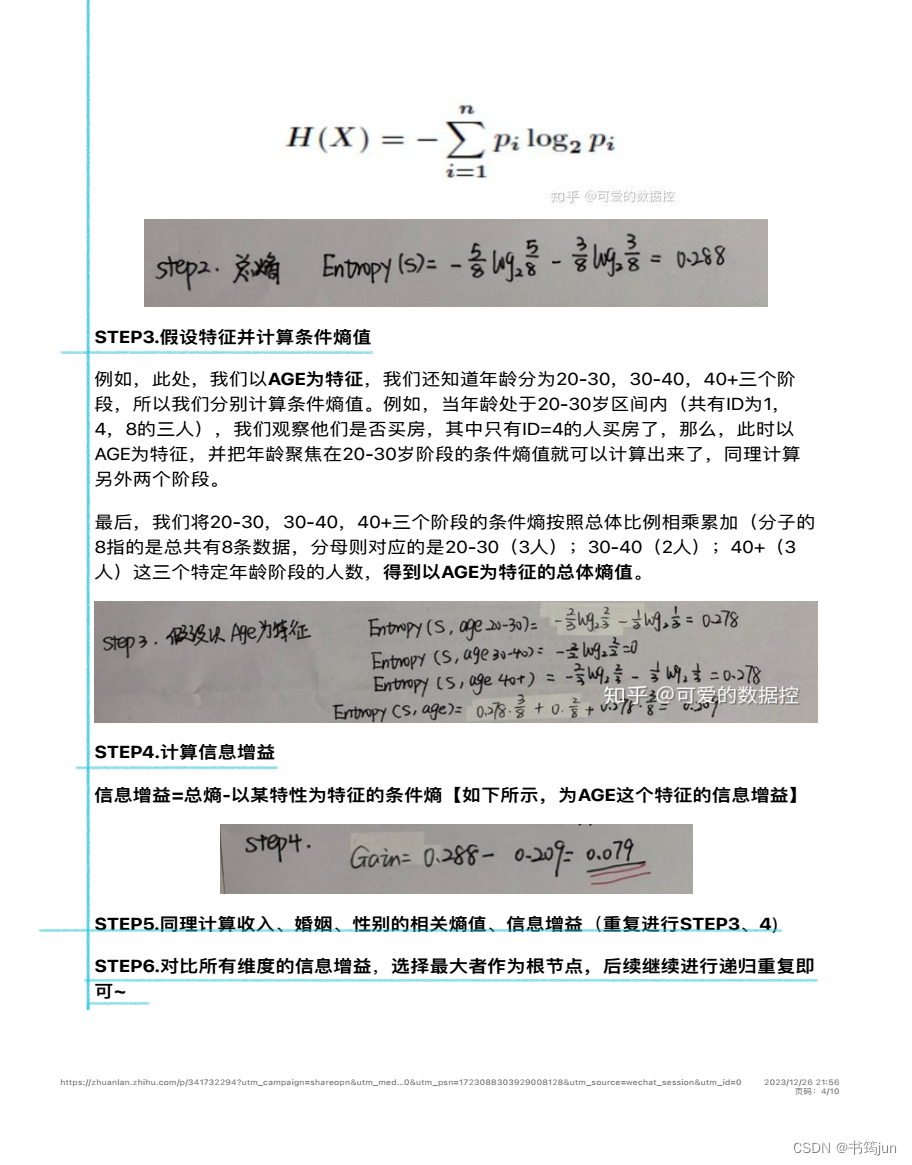 H(X) = -\sum_{i=1}^{n} p_i \log_2 p_i
知乎 @可爱的数据控
step2. 总熵 Entropy(S)= -5/8 log₂5/8 - 3/8 log₂3/8 = 0.288
STEP3.假设特征并计算条件熵值
例如，此处，我们以AGE为特征，我们还知道年龄分为20-30，30-40，40+三个阶
段，所以我们分别计算条件熵值。例如，当年龄处于20-30岁区间内（共有ID为1，
4，8的三人），我们观察他们是否买房，其中只有ID=4的人买房了，那么，此时以
AGE为特征，并把年龄聚焦在20-30岁阶段的条件熵值就可以计算出来了，同理计算
另外两个阶段。
最后，我们将20-30，30-40，40+三个阶段的条件熵按照总体比例相乘累加（分子的
8指的是总共有8条数据，分母则对应的是20-30（3人）；30-40（2人）；40+（3
人）这三个特定年龄阶段的人数，得到以AGE为特征的总体熵值。
step3. 假设以Age为特征 Entropy(S, age 20-30)= -2/3 log₂2/3 - 1/3 log₂1/3 = 0.278
Entropy(S, age 30-40)= -2/2 log₂2/2 =0
Entropy(S, age 40+) = -2/3 log₂2/3 - 1/3 log₂1/3 =0.278
知乎 @可爱的数据控
Entropy(S, age)= 0.278·3/8 + 0·2/8 + 0.278·3/8 = 0.209
STEP4.计算信息增益
信息增益=总熵-以某特性为特征的条件熵【如下所示，为AGE这个特征的信息增益】
step4. Gain= 0.288- 0.209= 0.079
STEP5.同理计算收入、婚姻、性别的相关熵值、信息增益（重复进行STEP3、4)
STEP6.对比所有维度的信息增益，选择最大者作为根节点，后续继续进行递归重复即
可~
https://zhuanlan.zhihu.com/p/341732294?utm_campaign=shareopn&utm_med...0&utm_psn=1723088303929008128&utm_source=wechat_session&utm_id=0 2023/12/26 21:56
页码：4/10
CSDN @书筠jun